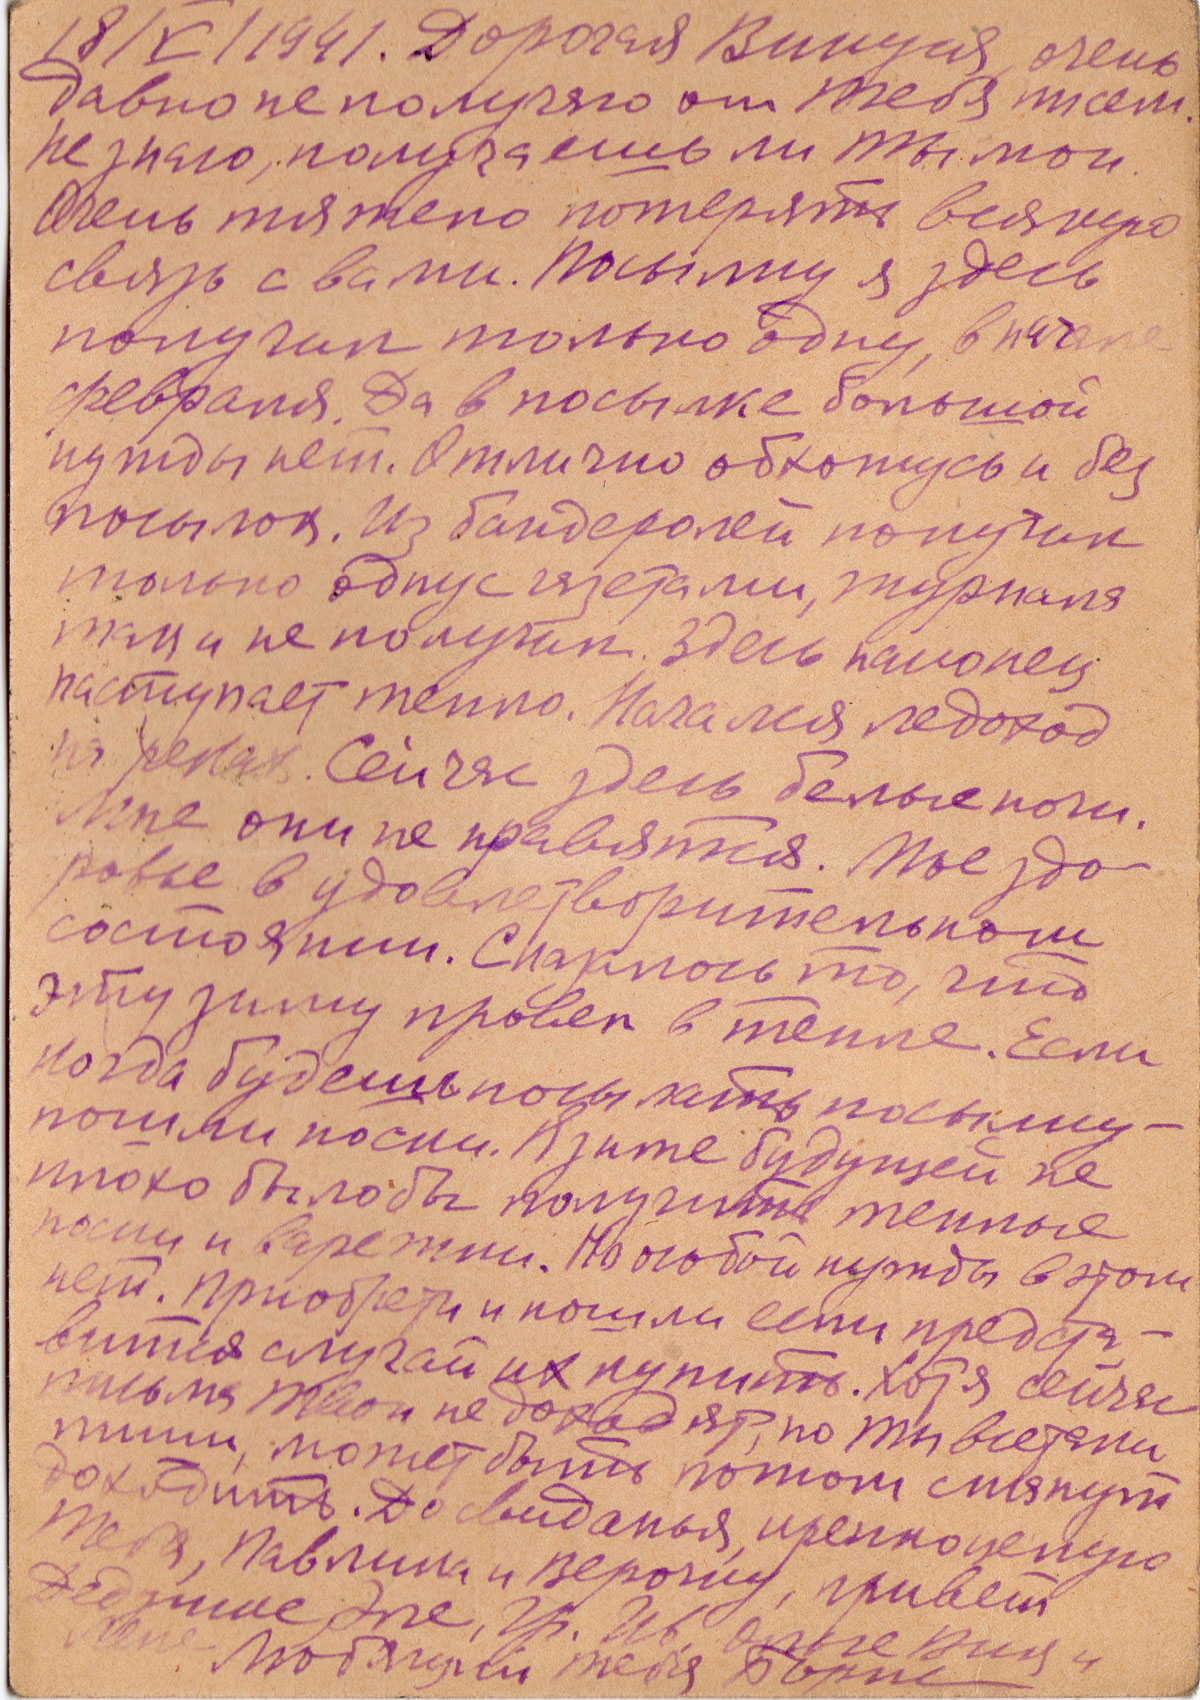 18/V/1941. Дорогая Винуся, очень
давно не получаю от тебя писем.
Не знаю, получаешь ли ты мои.
Очень тяжело потерять всякую
связь с вами. Посылку я здесь
получил только одну, в начале
февраля. Да в посылке большой
нужды нет. Отлично обхожусь и без
посылок. Из бандеролей получил
только одну с газетами, журнала
так и не получил. Здесь наконец
наступает тепло. Начался ледоход
на реках. Сейчас здесь белые ночи.
Мне они не нравятся. Мое здо-
ровье в удовлетворительном
состоянии. Сказалось то, что
эту зиму провел в тепле. Если
когда будешь посылать посылку –
пошли носки. К зиме будущей не
плохо было бы получить теплые
носки и варежки. Но особой нужды в этом
нет. Приобрети и пошли если предста-
вится случай их купить. Хотя сейчас
письма твои не доходят, но ты все таки
пиши, может быть потом станут
доходить. До свиданья, крепко целую
тебя, Павлика и Верочку, привет
Дедушке, Эле, Гр. Ив. Ольге
Лене Любящий тебя Борис